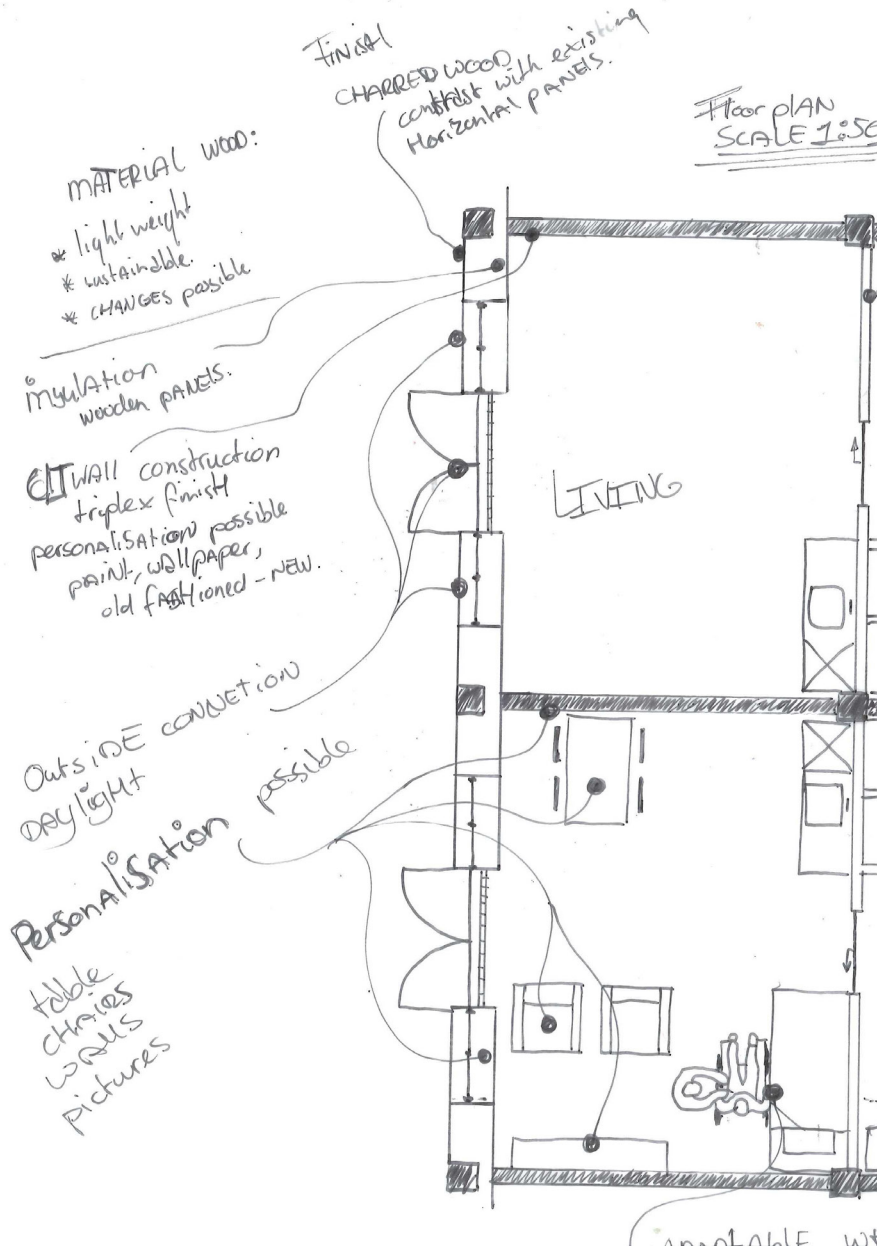 Finish
CHARRED WOOD
contrast with existing
Horizontal PANELS.
Floor plan
SCALE 1:50
MATERIAL WOOD:
* light weight
* sustainable.
* CHANGES possible
insulation
wooden PANELS.
WALL construction
triplex finish
personalisation possible
paint, wallpaper,
old fashioned - NEW.
LIVING
OutsiDE connetion
DAYligHt
Personalisation possible
table
CHAIRS
WALLS
pictures